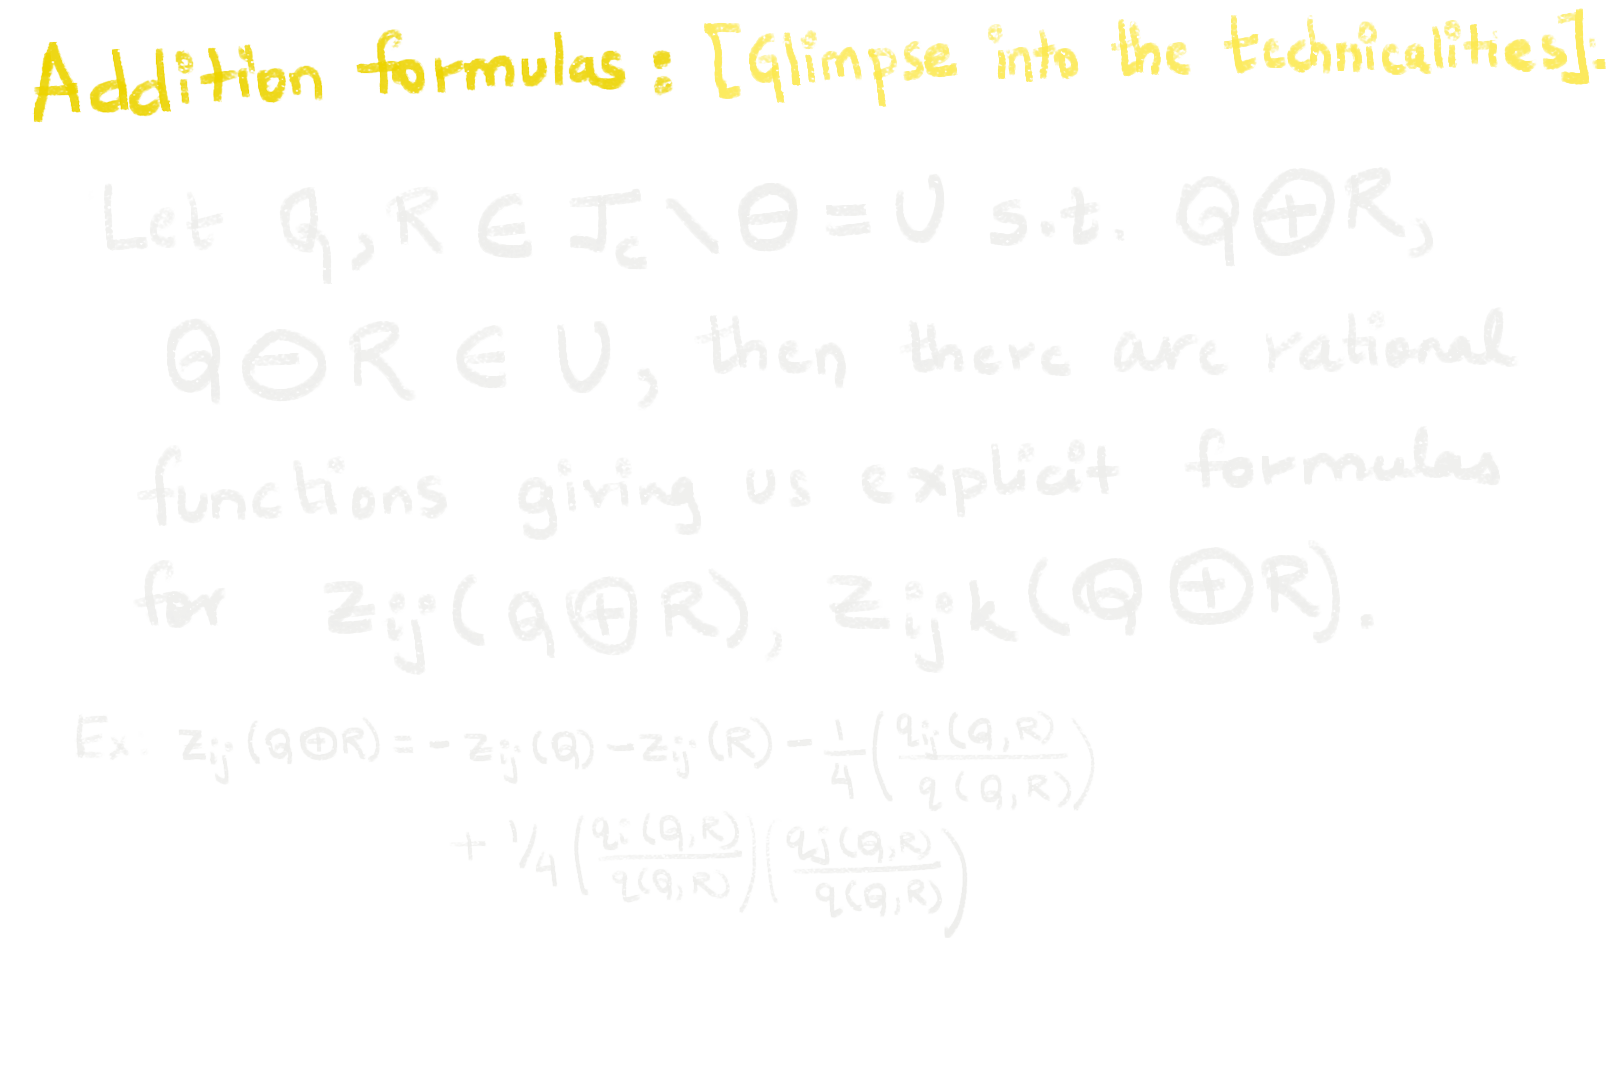 Addition formulas : [Glimpse into the technicalities].
Let Q, R ∈ J_C \ Θ = U s.t. Q ⊕ R,
Q ⊖ R ∈ U, then there are rational
functions giving us explicit formulas
for z_ij (Q ⊕ R), z_ijk (Q ⊕ R).
Ex. z_ij (Q ⊕ R) = - z_ij (Q) - z_ij (R) - 1/4 ( q_ij (Q, R) / q (Q, R) )
+ 1/4 ( q_i (Q, R) / q (Q, R) ) ( q_j (Q, R) / q (Q, R) )